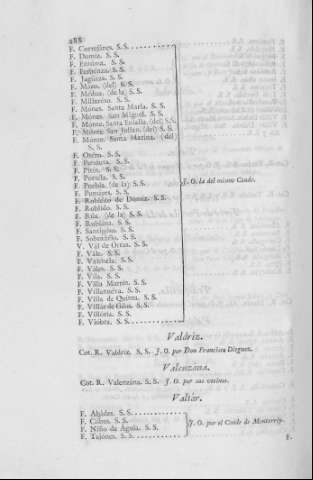 488
F. Cortiñáres. S. S.
F. Domíz. S. S.
F. Entóma. S. S.
F. Esfarrapa. S. S.
F. Jagüaza. S. S.
F. Mazo. (del) S. S.
F. Médua. (de la) S. S.
F. Millaróso. S. S.
F. Mónes. Santa María. S. S.
F. Mónes. San Miguel. S. S.
F. Monte. Santa Eulalia. (del) S. S.
F. Monte. San Julian. (del) S. S.
F. Monte. Santa Marina. (del)
S. S.
F. Outéa. S. S.
F. S. S.
F. S. S.
F. Portéla. S. S.
F. Puebla. (de la) S. S.
F. Pumáres. S. S.
F. Robledo de Domíz. S. S.
F. Roblido. S. S.
F. Rúa. (de la) S. S.
F. Rubiána. S. S.
F. Santigóso. S. S.
F. Sobradélo. S. S.
V. Val de Orras. S. S.
F. Vále. S. S.
F. Valéncia. S. S.
F. Váles. S. S.
F. Vila. S. S.
F. Villa Martin. S. S.
F. Villanueva. S. S.
F. Villa de Quinta. S. S.
F. Villar de Géos. S. S.
F. Villória. S. S.
F. S. S.
J. O. la del mismo Conde.
Valdríz.
Cot. R. Valdríz. S. S. J. O. por Don Francisco Dieguez.
Valenzána.
Cot. R. Valenzána. S. S. J. O. por sus vecinos.
Valtár.
F. S. S.
F. Calvos. S. S.
F. Niño de Aguia. S. S.
F. S. S.
J. O. por el Conde de Monterrey.
F.